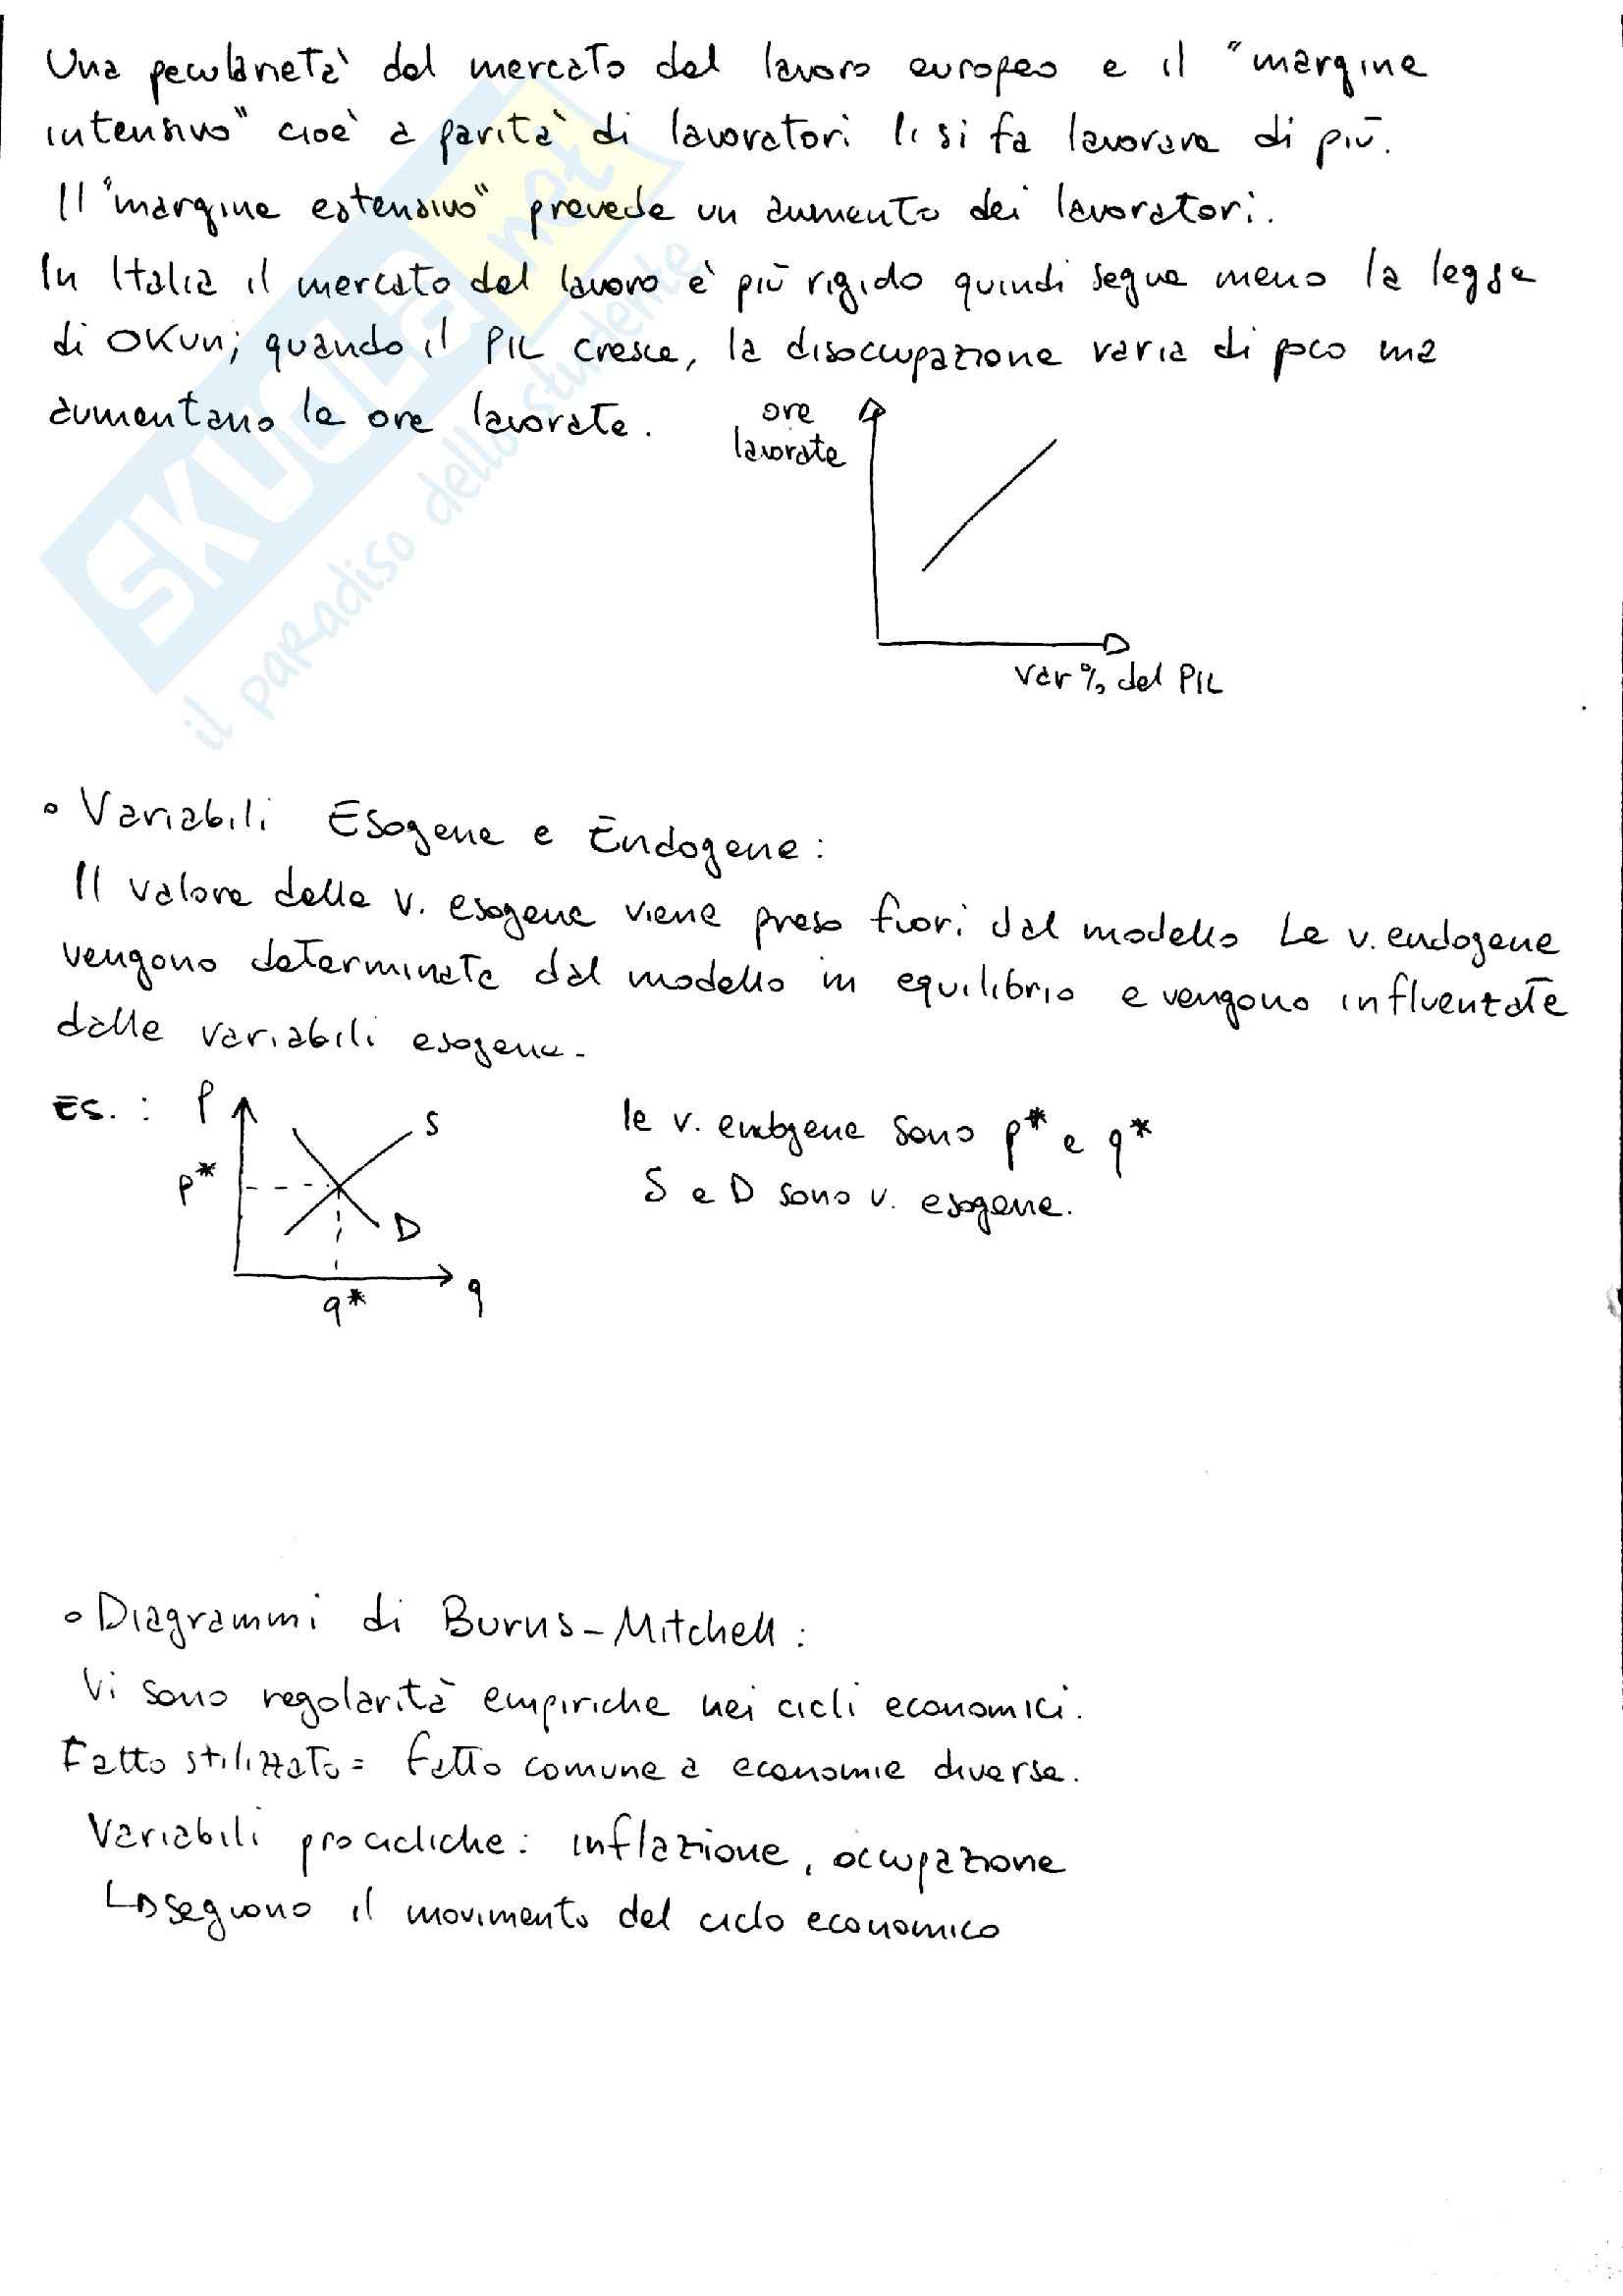 Una peculiarietà del mercato del lavoro europeo e il "margine
intensivo" cioè a parità di lavoratori li si fa lavorare di più.
Il "margine estensivo" prevede un aumento dei lavoratori.
In Italia il mercato del lavoro è più rigido quindi segue meno la legge
di OKun; quando il PIL cresce, la disoccupazione varia di poco ma
aumentano le ore lavorate.
ore
lavorate
var % del PIL
SKUOLA.net
il paradiso dello studente
° Variabili Esogene e Endogene:
Il valore delle v. esogene viene preso fuori dal modello Le v. endogene
vengono determinate dal modello in equilibrio e vengono influenzate
dalle variabili esogene.
ES. : P
S
p*
D
q*
q
le v. endogene sono p* e q*
S e D sono v. esogene.
° Diagrammi di Burns-Mitchell:
Vi sono regolarità empiriche nei cicli economici.
Fatto stilizzato = fatto comune a economie diverse.
Variabili procicliche: inflazione, occupazione
↳ seguono il movimento del ciclo economico